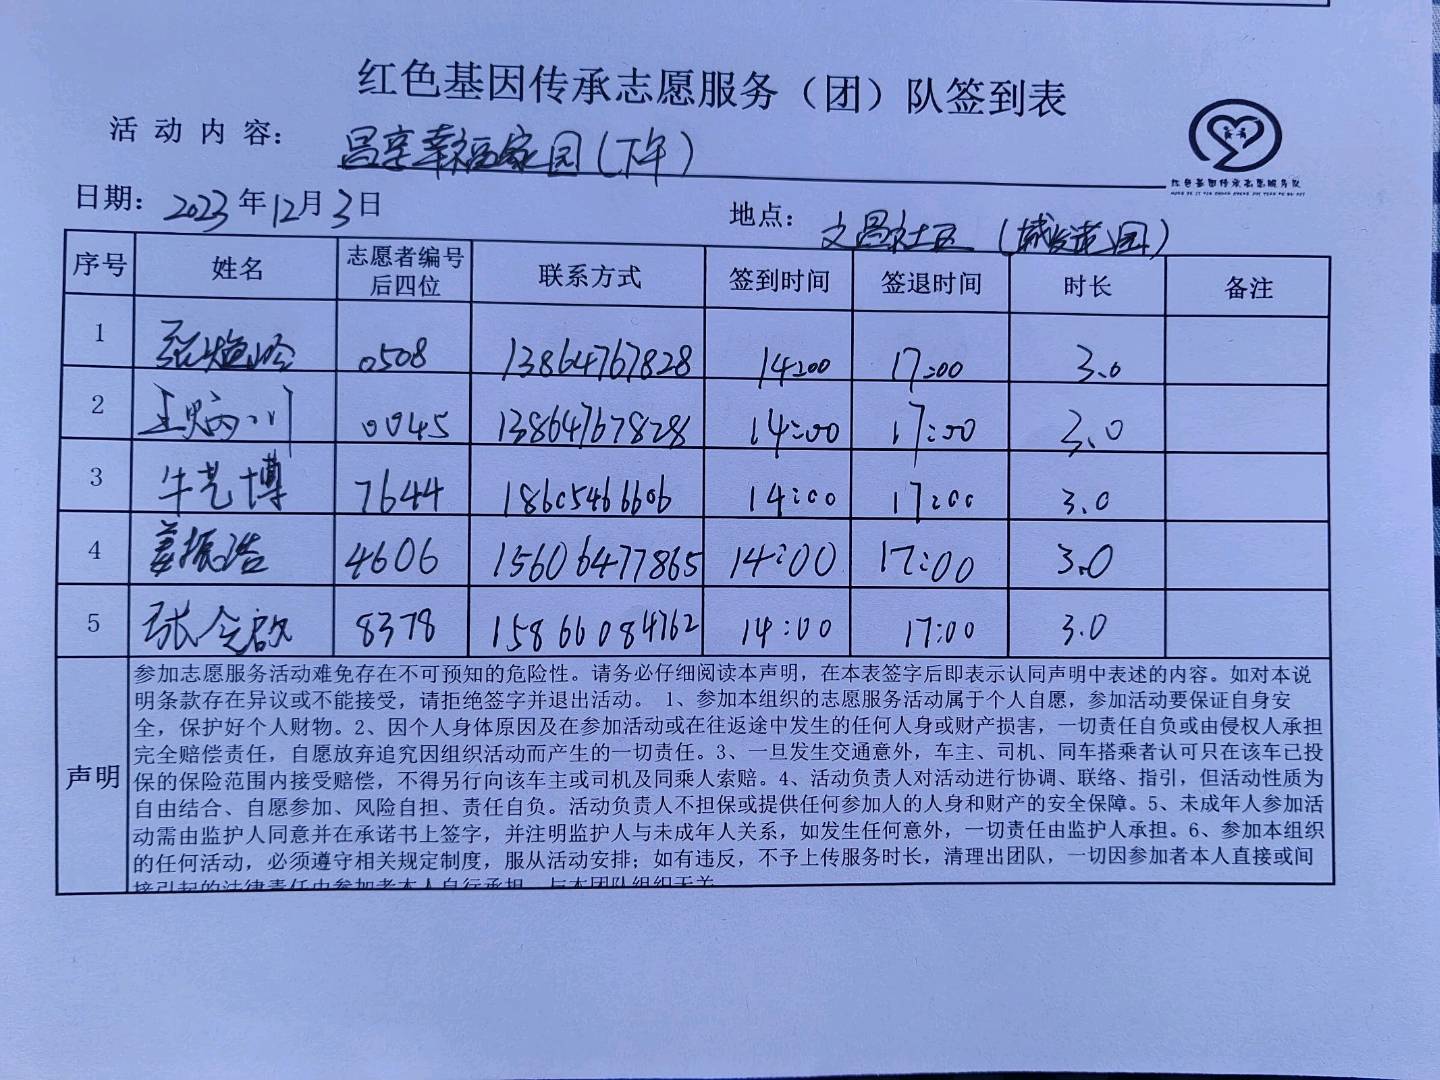 红色基因传承志愿服务（团）队签到表
活动内容： 昌享幸福家园（下午）
日期： 2023年12月3日 地点： 文昌社区（城发花园）
序号 姓名 志愿者编号后四位 联系方式 签到时间 签退时间 时长 备注
1 0508 13864767828 14:00 17:00 3.0
2 0045 13864767828 14:00 17:00 3.0
3 牛艺博 7644 18605466606 14:00 17:00 3.0
4 姜振浩 4606 15606477865 14:00 17:00 3.0
5 张令啟 8378 15866084762 14:00 17:00 3.0
声明
参加志愿服务活动难免存在不可预知的危险性。请务必仔细阅读本声明，在本表签字后即表示认同声明中表述的内容。如对本说
明条款存在异议或不能接受，请拒绝签字并退出活动。 1、参加本组织的志愿服务活动属于个人自愿，参加活动要保证自身安
全，保护好个人财物。2、因个人身体原因及在参加活动或在往返途中发生的任何人身或财产损害，一切责任自负或由侵权人承担
完全赔偿责任，自愿放弃追究因组织活动而产生的一切责任。3、一旦发生交通意外，车主、司机、同车搭乘者认可只在该车已投
保的保险范围内接受赔偿，不得另行向该车主或司机及同乘人索赔。4、活动负责人对活动进行协调、联络、指引，但活动性质为
自由结合、自愿参加、风险自担、责任自负。活动负责人不担保或提供任何参加人的人身和财产的安全保障。5、未成年人参加活
动需由监护人同意并在承诺书上签字，并注明监护人与未成年人关系，如发生任何意外，一切责任由监护人承担。6、参加本组织
的任何活动，必须遵守相关规定制度，服从活动安排；如有违反，不予上传服务时长，清理出团队，一切因参加者本人直接或间
接引起的法律责任由参加者本人自行承担，与本团队组织无关
红色基因传承志愿服务队